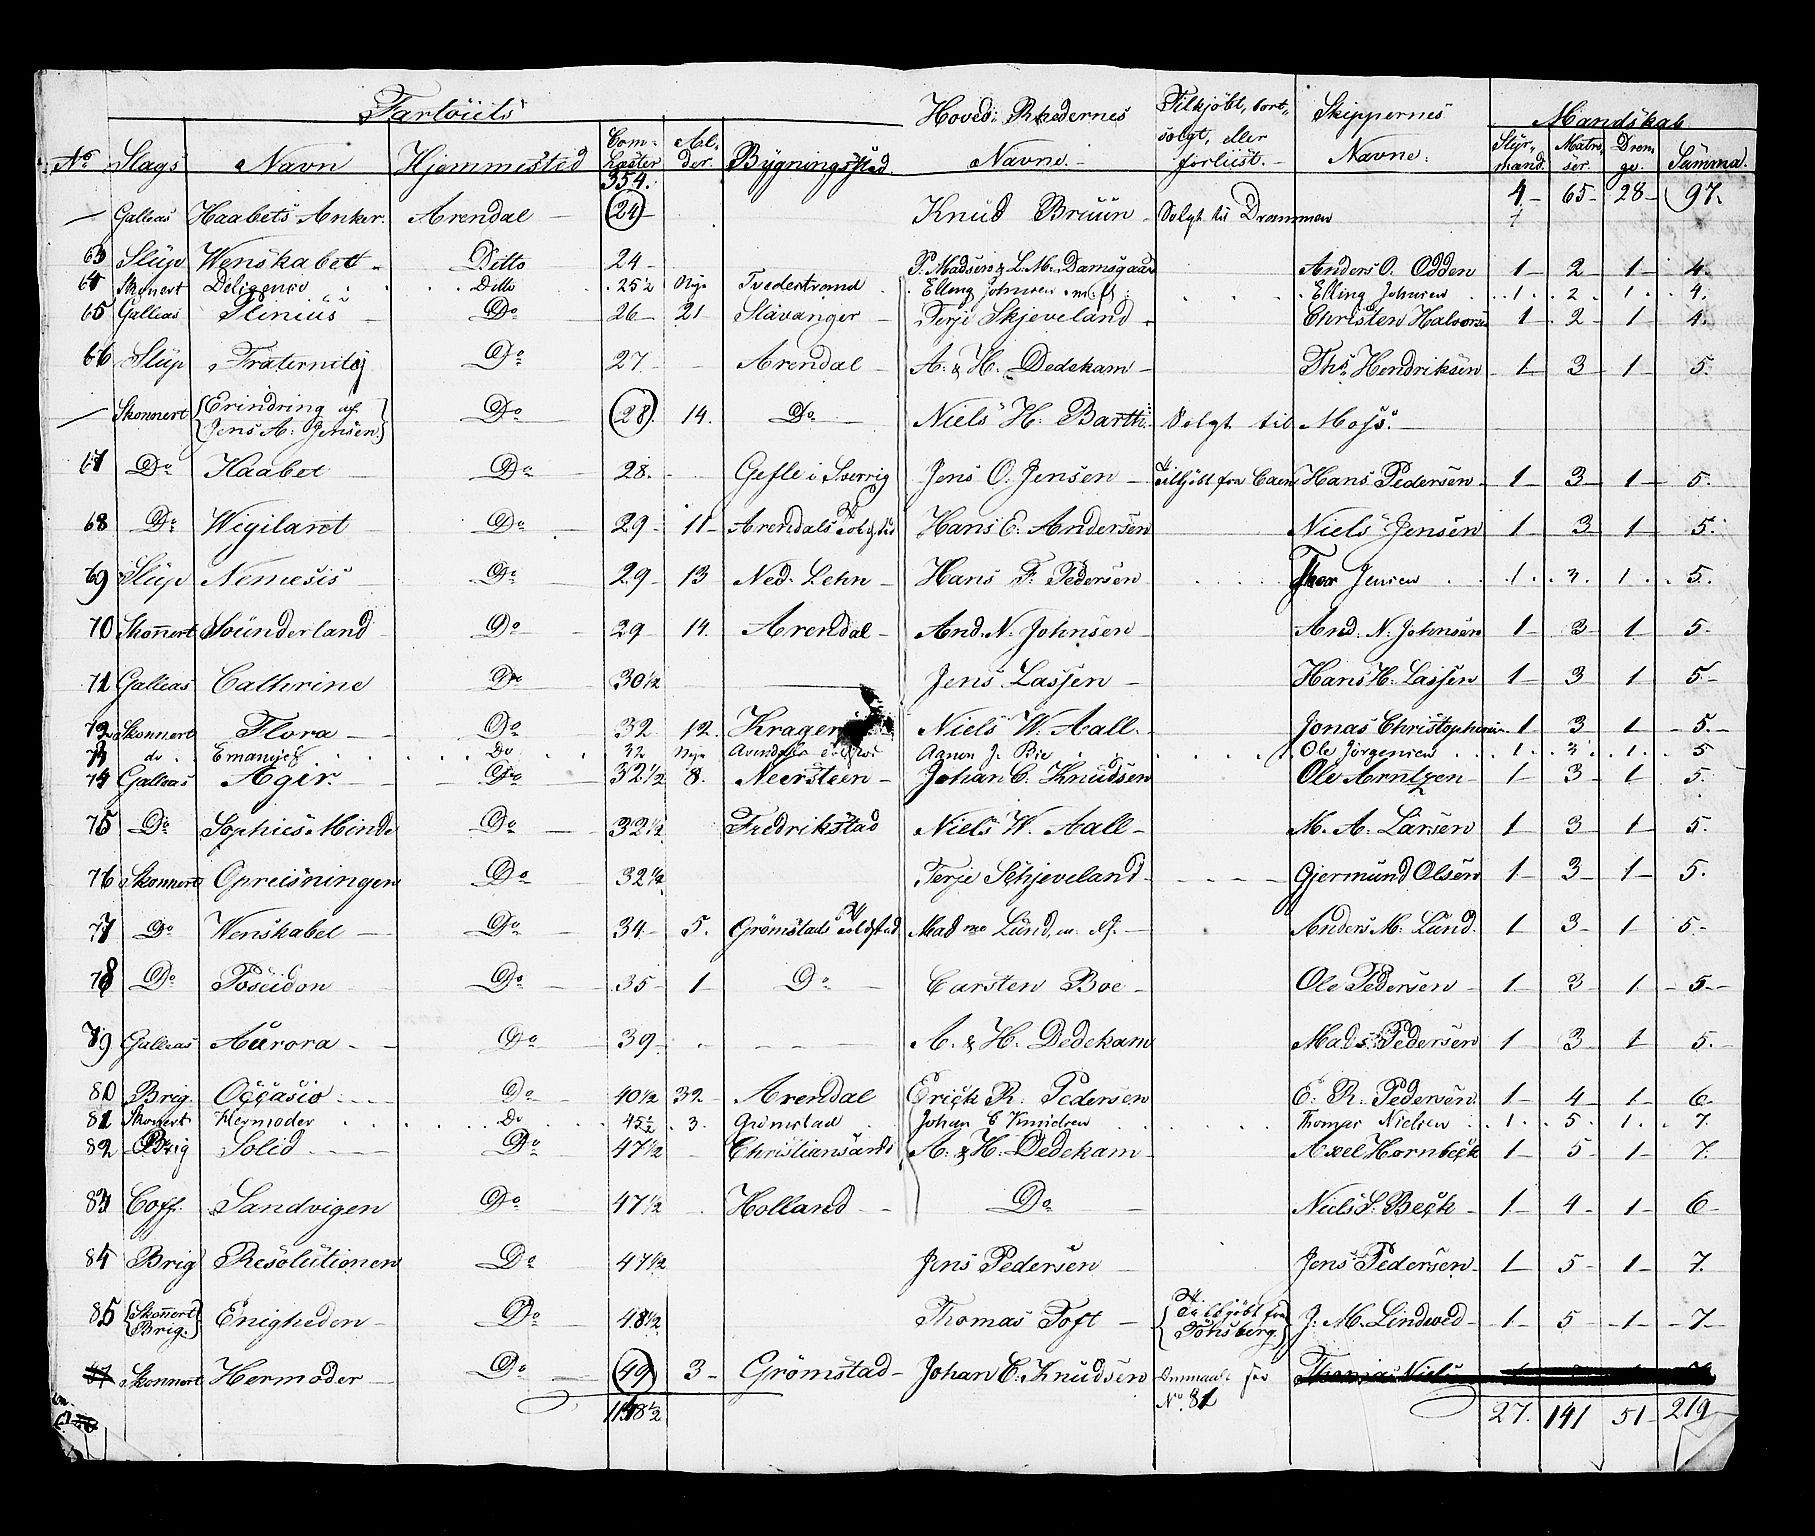 Fartöiets Hoved: Rhedernes Tilkjöbt, bort- Skippernes Mandskab
Com- Al- solgt, eller Styr- Matro- Dren-
No Slags Navn Hjemmested Laster der. Bygningssted Navne. forliist. Navne. mand. ser. ge. Summa.
354. 4 65 28 97.
— Galleas Haabets Anker. Arendal 24 Knud Bruun Solgt til Drammen
63 Slup Wenskabet Ditto 24 P. Madsen & L. M. Damsgaard Anders O. Odden 1 2 1 4.
64 Skonnert Deligence Ditto 25½ Nye Tvedestrand Elling Johnsen Elling Johnsen 1 2 1 4.
65 Galleas Plinius Do 26 21 Stavanger Terje Skjeveland Christen Halvorsen 1 2 1 4.
66 Slup Fraternitij Do 27 Arendal A. & H. Dedekam Ths Hendriksen 1 3 1 5.
— Skonnert {Erindring af Do 28. 14. Do Niels H. Barth: Solgt til Moss.
{Jens A: Jensen}
67 Do Haabet Do 28. Gefle i Sverrig Jens O. Jensen Tilkjöbt fra Caen Hans Pedersen 1 3 1 5.
68 Do Wigilant Do 29 11 Arendals Hans E. Andersen Niels Jensen 1 3 1 5.
69 Slup Nemesis Do 29 13 Ned. Lehn Hans F. Pedersen Jensen 1. 3. 1. 5.
70 Skonnert Sounderland Do 29 14. Arendal And. N. Johnsen And. N. Johnsen 1 3 1 5.
71 Galleas Cathrine Do 30½ Jens Lassen Hans H. Lassen 1 3 1 5
72 Skonnert Flora Do 32 12. Niels W. Aall. Jonas Christophersen 1 3 1 5.
73 do Do 32 Nye J. Bie Ole Jörgensen 1. 3. 1. 5
74 Galleas Agir. Do 32½ 8. Neersteen Johan C. Knudsen Ole Arntzen 1 3 1 5.
75 Do Sophies Minde Do 32½ Fredrikstad Niels W. Aall M. A. Larsen 1 3 1 5.
76 Skonnert Opreisningen Do 32½ Terje Schjeveland Gjermund Olsen 1 3 1 5.
77 Do Wenskabet Do 34 5. Grömstads Madme Lund, Anders M. Lund. 1 3 1 5.
78 Do Poseidon Do 35 1 Do Carsten Boe Ole Pedersen 1 3 1 5
79 Galleas Aurora Do 39 A. & H. Dedekam Mads Pedersen 1 3 1 5.
80 Brig Occasio Do 40½ 32 Arendal Erick R. Pedersen E. R. Pedersen 1 4 1 6.
81 Skonnert Hermoder Do 45½ 3. Grömstad Johan C Knudsen Thomas Nielsen 1. 5 1. 7.
82 Brig Solid Do 47½ Christiansand A. & H. Dedekam Axel Hornbeck 1 5 1 7.
83 Coff. Sandvigen Do 47½ Holland Do Niels S. Beck 1 4 1 6
84 Brig Resolutionen Do 47½ Jens Pedersen Jens Pedersen 1 5 1 7.
85 {Skonnert Brig.} Enigheden Do 48½ Thomas Toft {Tilkjöbt fra Tönsberg.} J. M. Lindved 1 5 1 7
Skonnert Hermoder Do 49 3 Grömstad Johan C. Knudsen for
No. 81
27. 141 51 219